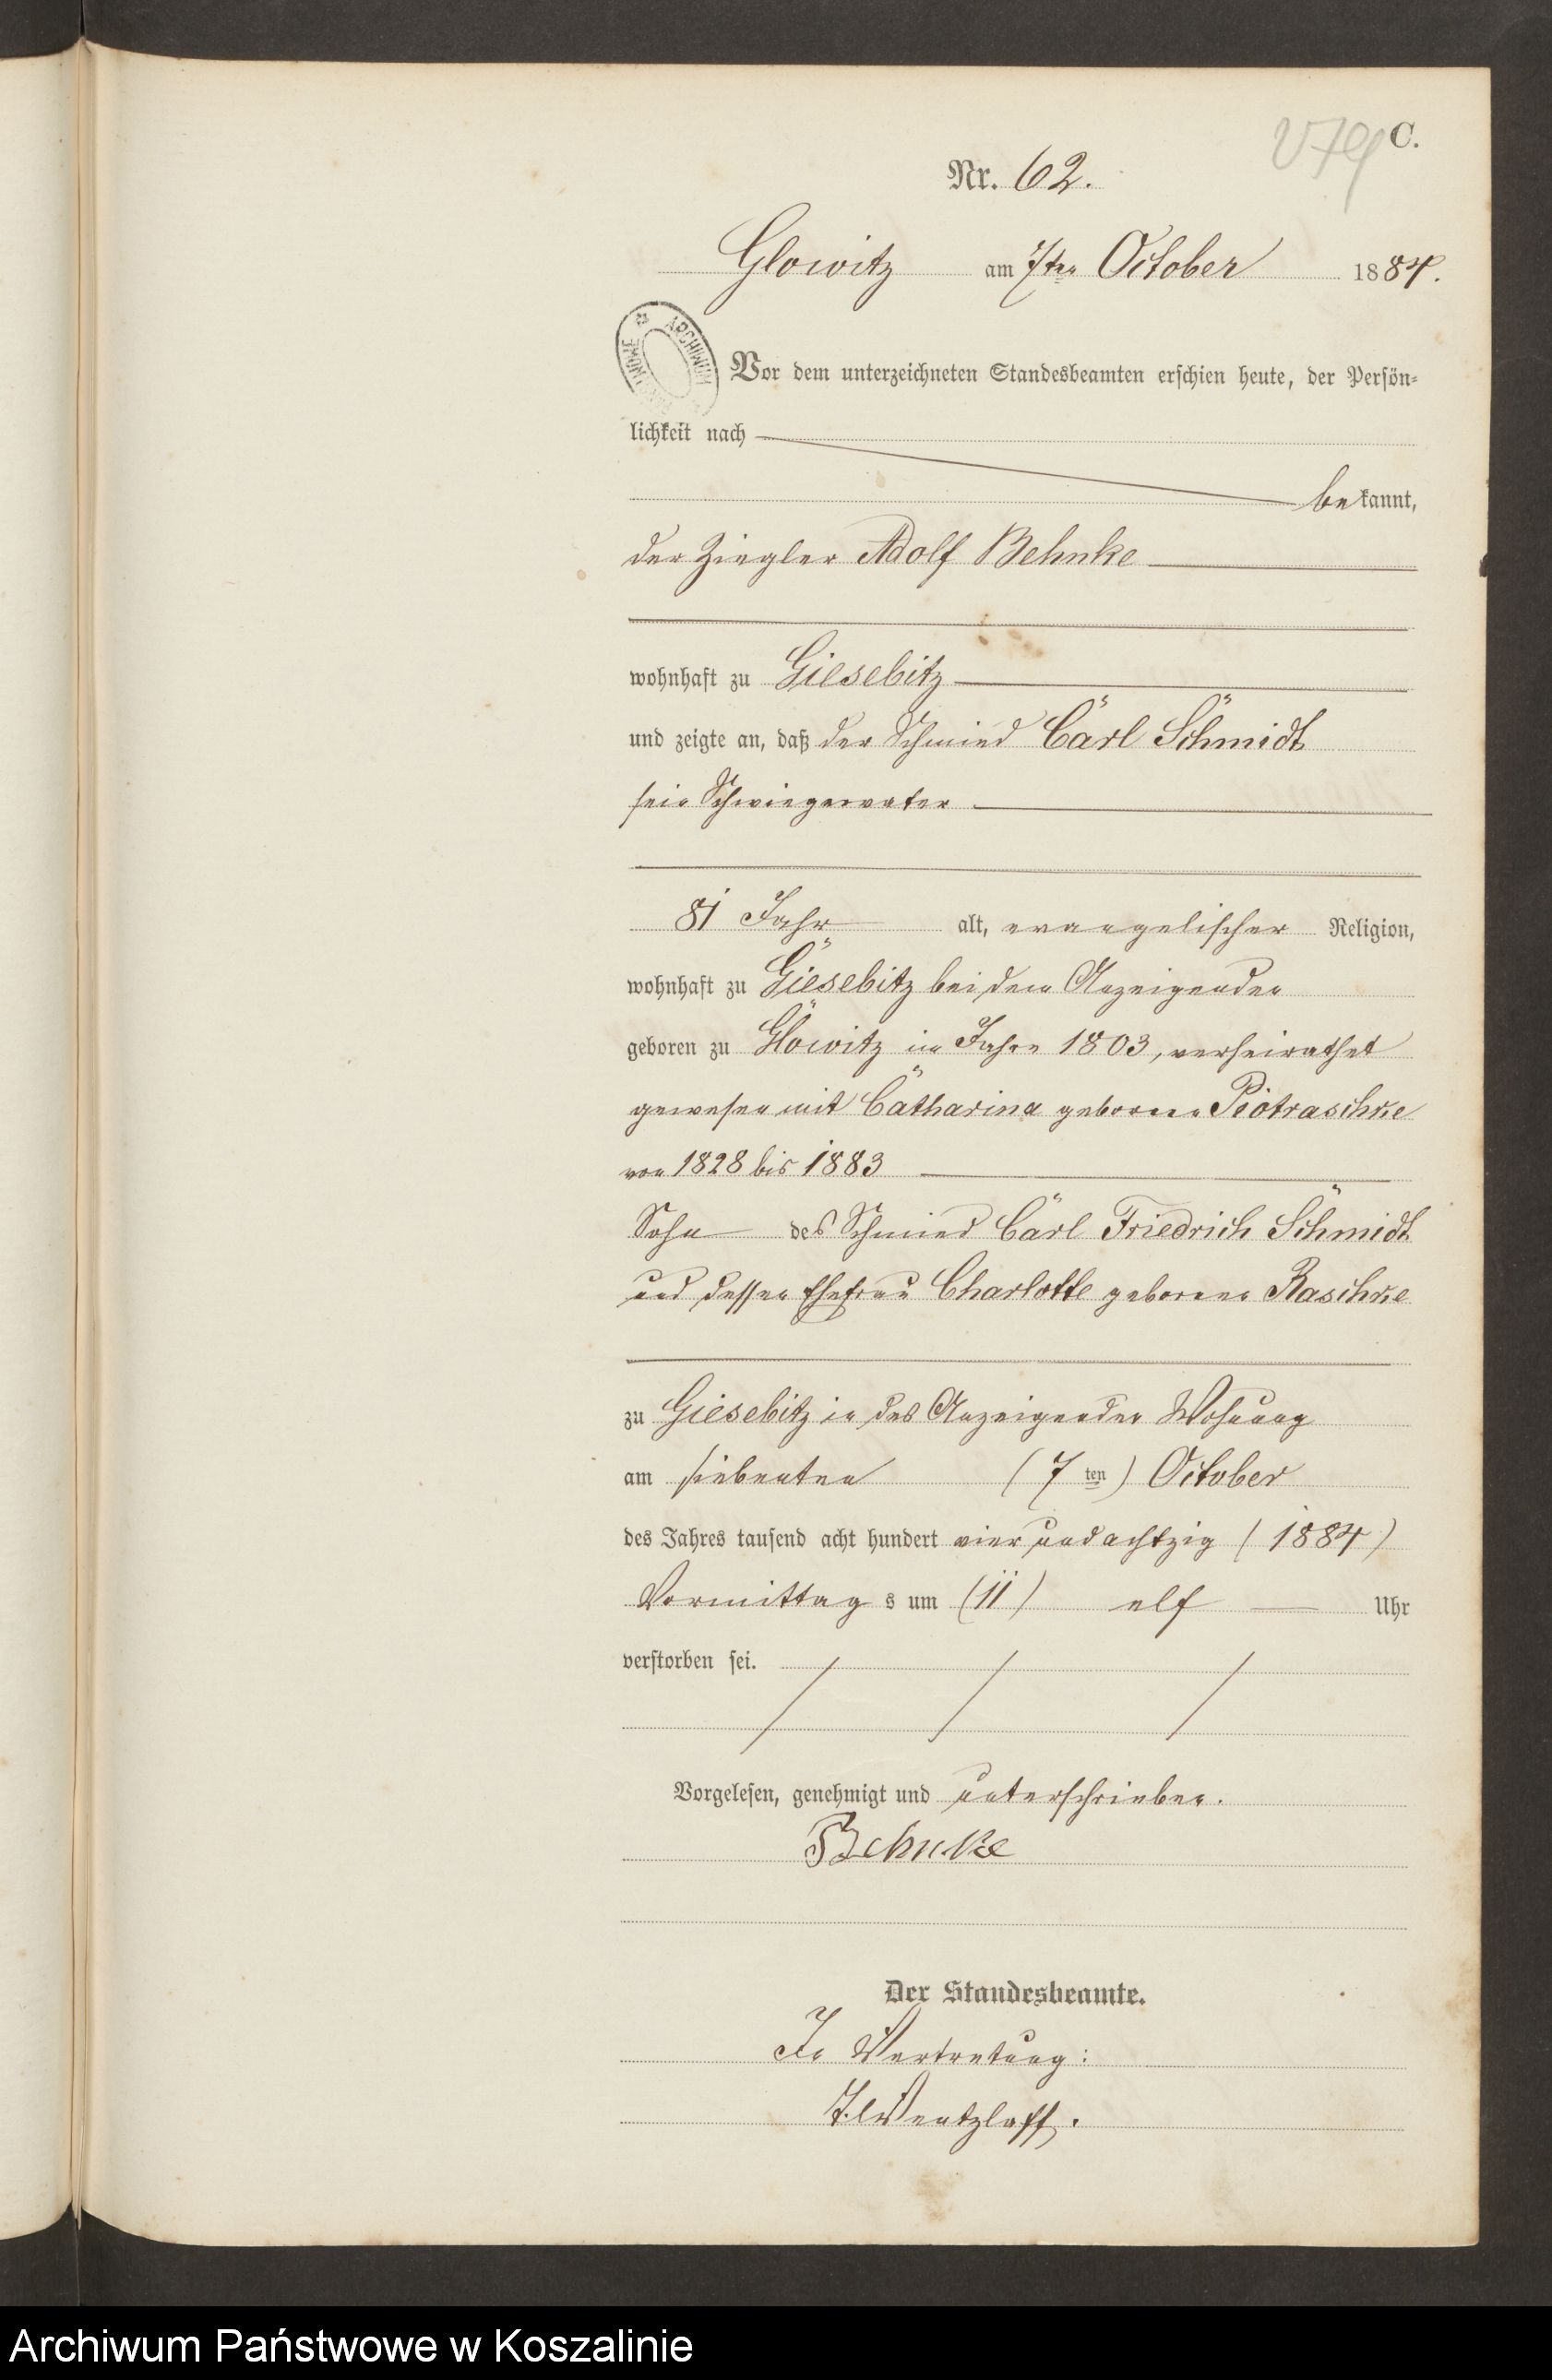 C.
Nr. 62.
Glowitz am 7ten October 1884.
ARCHIWUM
Vor dem unterzeichneten Standesbeamten erschien heute, der Persön-
lichkeit nach
bekannt,
der Ziegler Adolf Behnke
wohnhaft zu Giesebitz
und zeigte an, daß der Schmied Carl Schmidt
sein Schwiegervater
81 Jahr alt, evangelischer Religion,
wohnhaft zu Giesebitz bei dem Anzeigenden
geboren zu Glowitz im Jahre 1803, verheirathet
gewesen mit Catharina geborene Piotraschke
von 1828 bis 1883
Sohn des Schmied Carl Friedrich Schmidt
und dessen Ehefrau Charlotte geborene Raschke
zu Giesebitz in des Anzeigenden Wohnung
am siebenten (7ten) October
des Jahres tausend acht hundert vier und achtzig (1884)
Vormittag s um (11) elf Uhr
verstorben sei.
Vorgelesen, genehmigt und unterschrieben.
Behnke
Der Standesbeamte.
In Vertretung:
Wentzlaff.
Archiwum Państwowe w Koszalinie